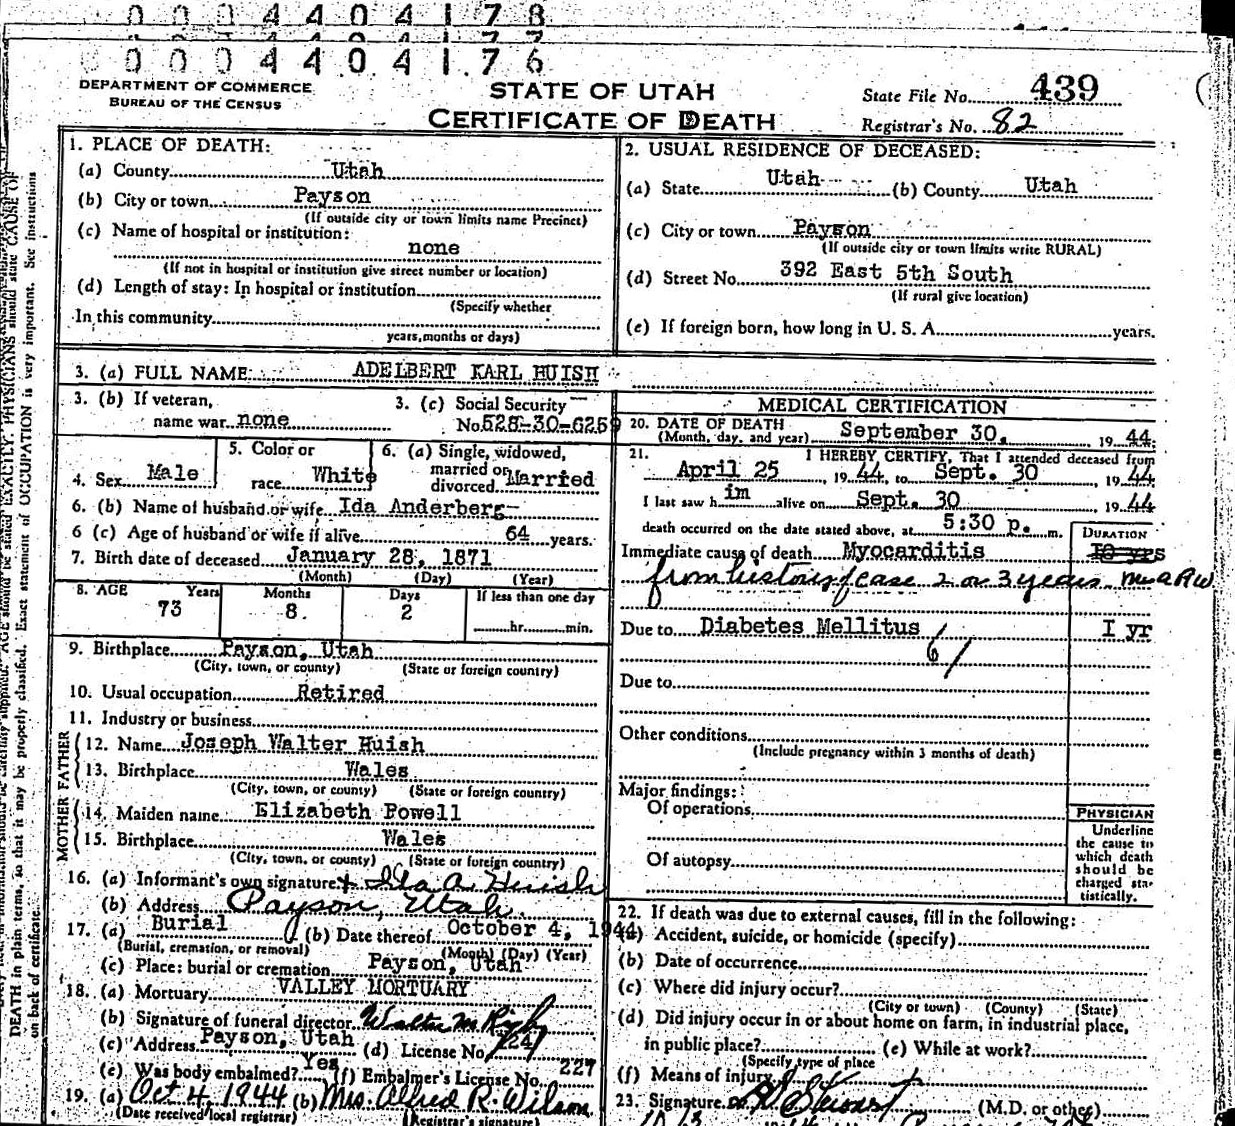 0 0 0 4 4 0 4 1 7 8
0 0 0 4 4 0 4 1 7 6
DEPARTMENT OF COMMERCE
BUREAU OF THE CENSUS
STATE OF UTAH
CERTIFICATE OF DEATH
State File No. 439
Registrar's No. 82
1. PLACE OF DEATH:
(a) County Utah
(b) City or town Payson
(If outside city or town limits name Precinct)
(c) Name of hospital or institution:
none
(If not in hospital or institution give street number or location)
(d) Length of stay: In hospital or institution
(Specify whether
In this community
years, months or days)
2. USUAL RESIDENCE OF DECEASED:
(a) State Utah (b) County Utah
(c) City or town Payson
(If outside city or town limits write RURAL)
(d) Street No. 392 East 5th South
(If rural give location)
(e) If foreign born, how long in U. S. A. years.
3. (a) FULL NAME ADELBERT KARL HUISH
3. (b) If veteran,
name war none
3. (c) Social Security
No. 528-30-6259
4. Sex Male
5. Color or
race White
6. (a) Single, widowed,
married or
divorced Married
6. (b) Name of husband or wife Ida Anderberg
6 (c) Age of husband or wife if alive 64 years.
7. Birth date of deceased January 28, 1871
(Month) (Day) (Year)
8. AGE Years Months Days If less than one day
73 8 2 hr. min.
9. Birthplace Payson, Utah
(City, town, or county) (State or foreign country)
10. Usual occupation Retired
11. Industry or business
FATHER
12. Name Joseph Walter Huish
13. Birthplace Wales
(City, town, or county) (State or foreign country)
MOTHER
14. Maiden name Elizabeth Powell
15. Birthplace Wales
(City, town, or county) (State or foreign country)
16. (a) Informant's own signature Ida A. Huish
(b) Address Payson, Utah.
17. (a) Burial (b) Date thereof October 4, 1944
(Burial, cremation, or removal) (Month) (Day) (Year)
(c) Place: burial or cremation Payson, Utah
18. (a) Mortuary VALLEY MORTUARY
(b) Signature of funeral director Walter M.
(c) Address Payson, Utah (d) License No.
(e) Was body embalmed? Yes (f) Embalmer's License No. 227
19. (a) Oct 4, 1944 (b) Mrs. Alfred R. Wilson
(Date received local registrar) (Registrar's signature)
MEDICAL CERTIFICATION
20. DATE OF DEATH
(Month, day, and year) September 30, 1944
21. I HEREBY CERTIFY, That I attended deceased from
April 25, 1944, to Sept. 30 1944
I last saw him alive on Sept. 30, 1944
death occurred on the date stated above, at 5:30 p. m.
DURATION
Immediate cause of death Myocarditis 10 yrs
from history of case 2 or 3 years
Due to Diabetes Mellitus I yr
61
Due to
Other conditions
(Include pregnancy within 3 months of death)
Major findings:
Of operations
Of autopsy
PHYSICIAN
Underline
the cause to
which death
should be
charged sta-
tistically.
22. If death was due to external causes, fill in the following:
(a) Accident, suicide, or homicide (specify)
(b) Date of occurrence
(c) Where did injury occur?
(City or town) (County) (State)
(d) Did injury occur in or about home on farm, in industrial place,
in public place? (e) While at work?
(Specify type of place
(f) Means of injury
23. Signature (M.D. or other)
DEATH in plain terms, so that it may be properly classified. Exact statement of OCCUPATION is very important. See instructions
on back of certificate.